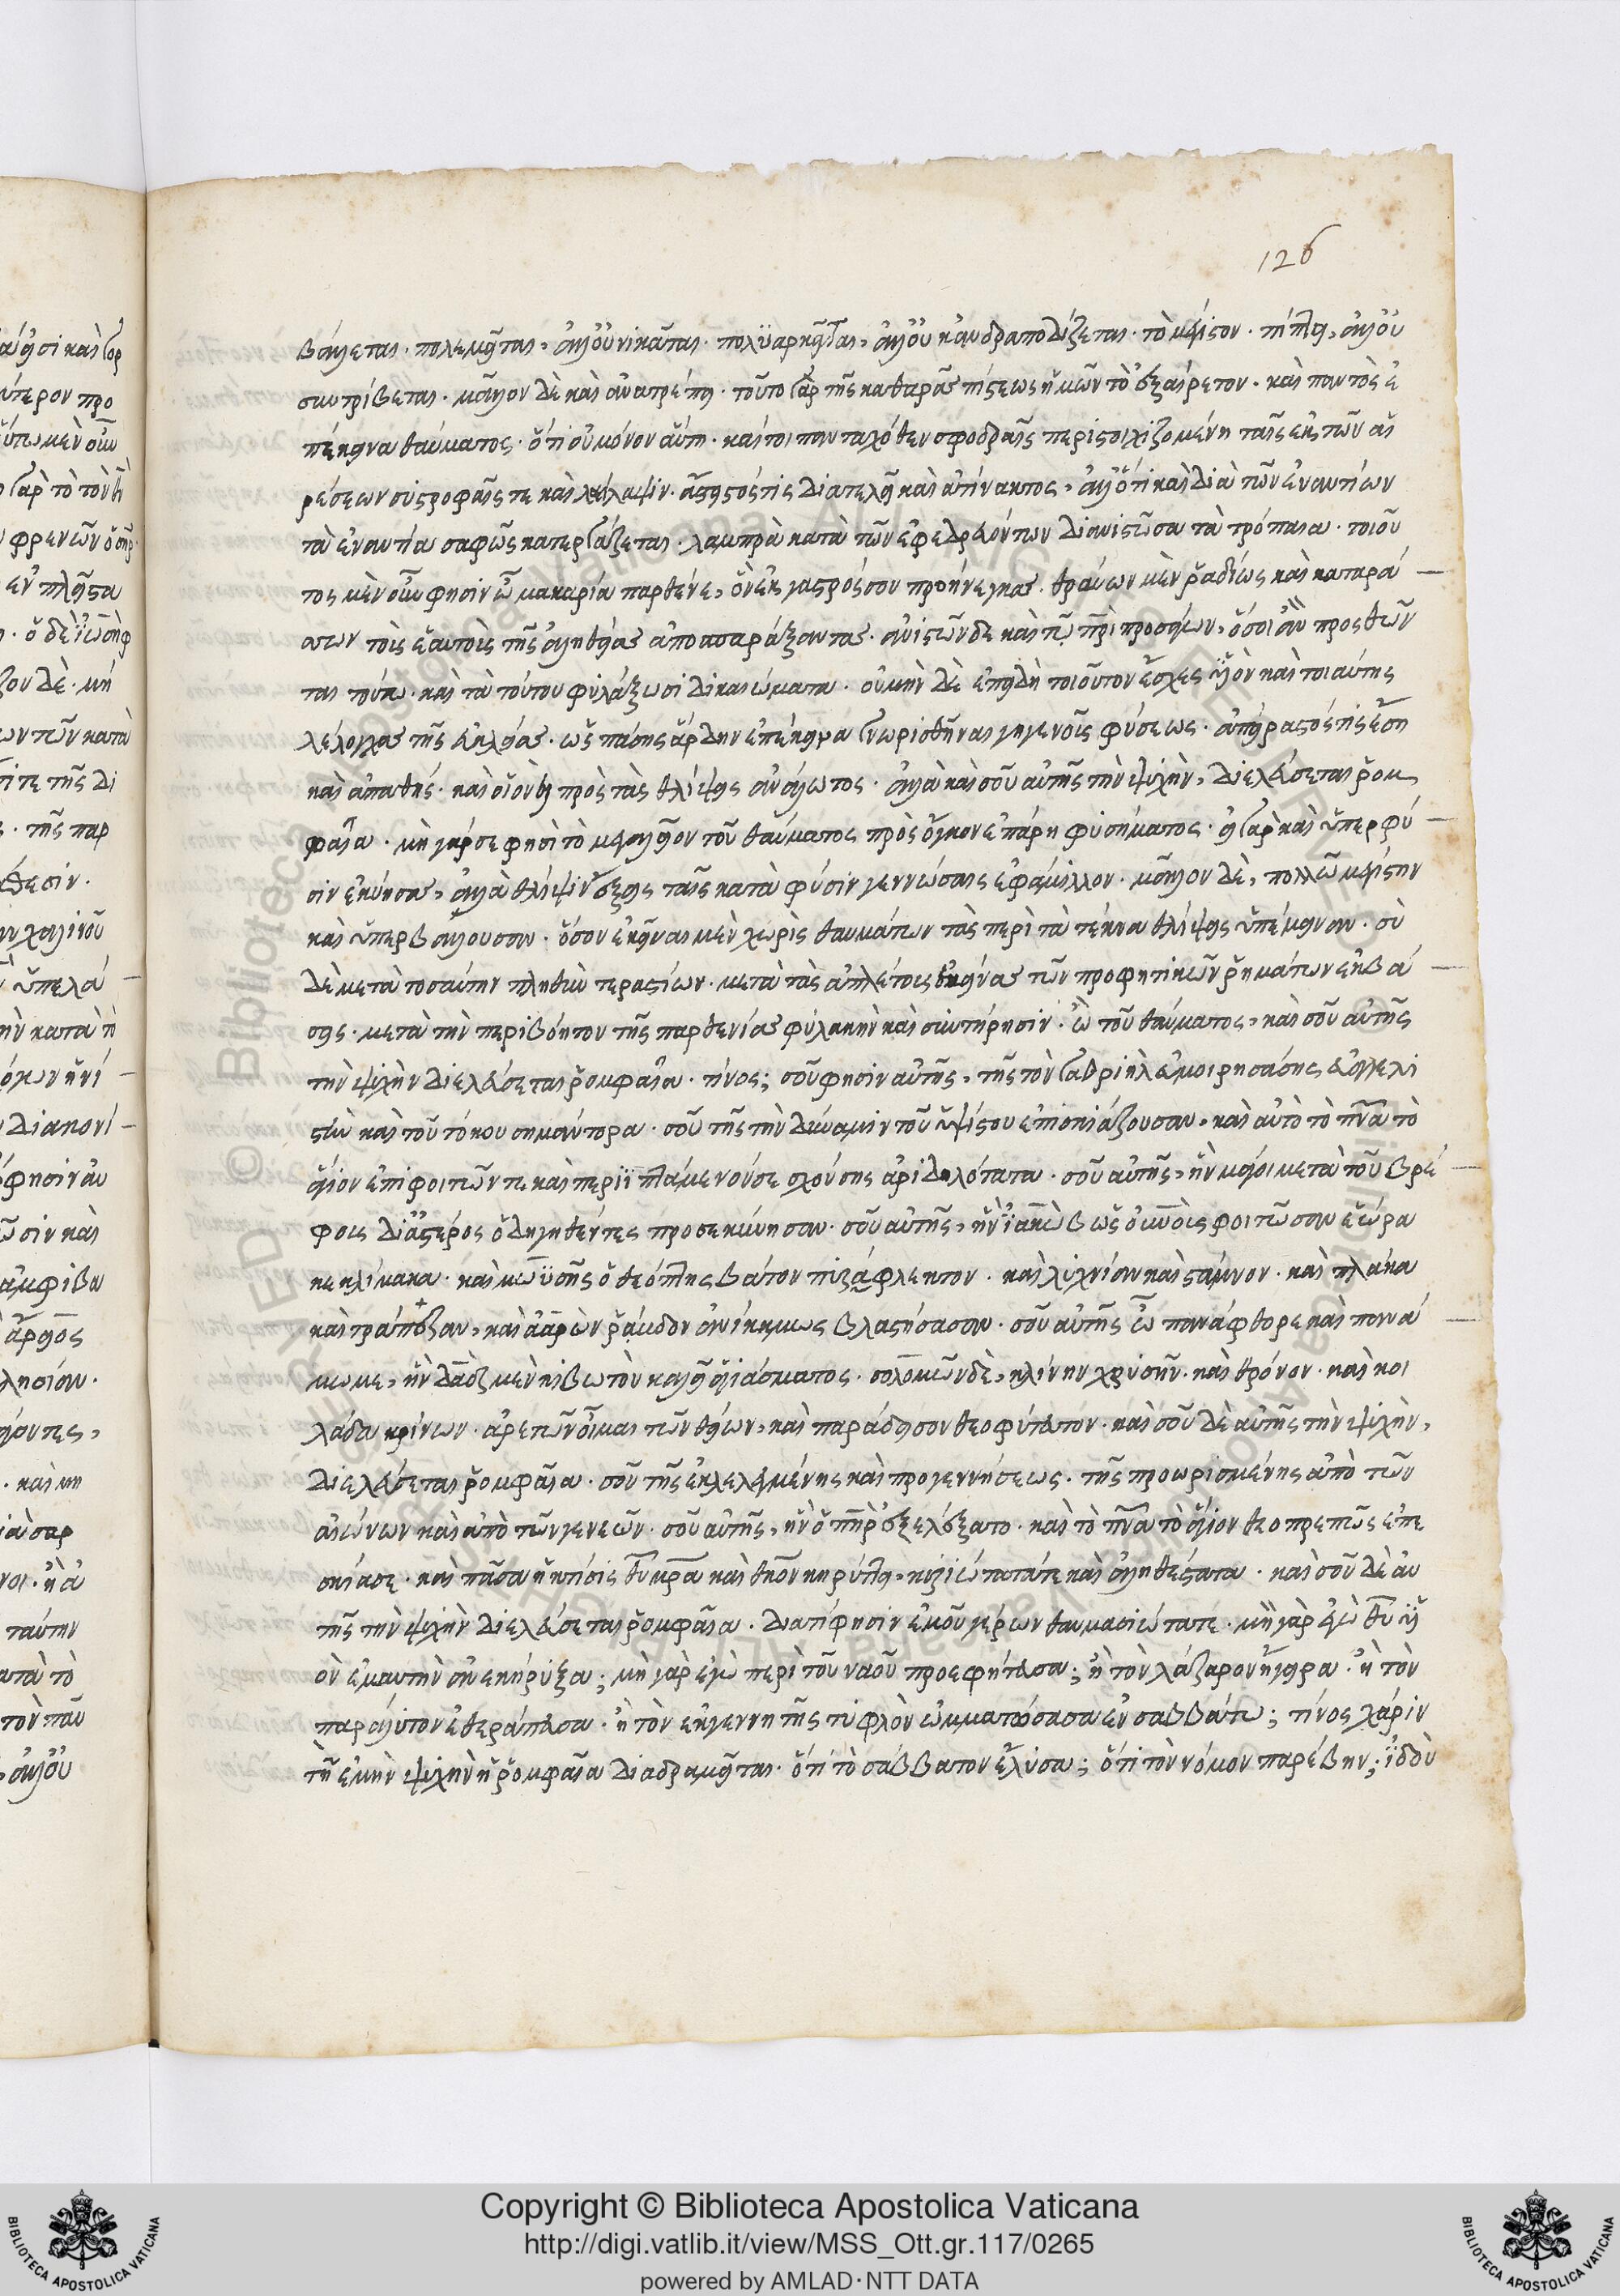 126
βάλλεται· πολεμεῖται, ἀλλ' οὐ νικᾶται· πολϊορκεῖται, ἀλλ' οὐκ ἀνδραποδίζεται· τὸ μεῖζον· πίπτει, ἀλλ' οὐ
συντρίβεται· μᾶλλον δὲ καὶ ἀνατρέπει· τοῦτο γὰρ τῆς καθαρᾶς πίστεως ἡμῶν τὸ ἐξαίρετον· καὶ παντὸς ἐ
πέκεινα θαύματος· ὅτι οὐ μόνον αὕτη· καίτοι πανταχόθεν σφοδραῖς περιστοιχιζομένη ταῖς ἐκ τῶν αἱ
ρέσεων συστροφαῖς τε καὶ λαίλαψιν· ἄσειστός τις διατελεῖ καὶ ἀτίνακτος, ἀλλ' ὅτι καὶ διὰ τῶν ἐναντίων
τὰ ἐναντία σαφῶς κατεργάζεται· λαμπρὰ κατὰ τῶν ἐφεδρευόντων διανιστῶσα τὰ τρόπαια· τοιοῦ
τος μὲν οὖν φησιν ὦ μακαρία παρθένε, ὃν ἐκ γαστρός σου προήνεγκας· θραύων μὲν ῥαδίως καὶ καταρά
σσων τοὺς ἑαυτοὺς τῆς ἀληθείας ἀποσπαράξαντας· ἀνιστῶν δὲ καὶ τῷ πρι προσάγων, ὅσοι ἂν προσθῶν
ται τούτῳ· καὶ τὰ τούτου φυλάξωσι δικαιώματα· οὐ μὴν δὲ ἐπειδὴ τοιοῦτον ἔσχες υἱὸν καὶ τοιαύτης
λέλογχας τῆς εὐκλείας· ὡς πάσης ἄρδην ἐπέκεινα γνωρισθῆναι γηγενοῦς φύσεως· ἀπείραστός τις ἔσῃ
καὶ ἀπαθής· καὶ οἱονεὶ πρὸς τὰς θλίψεις ἀνάλωτος· ἀλλὰ καὶ σοῦ αὐτῆς τὴν ψυχὴν, διελεύσεται ῥομ
φαία· μὴ γάρ σε φησὶ τὸ μεγαλεῖον τοῦ θαύματος πρὸς ὄγκον ἐπάρῃ φυσήματος· εἰ γὰρ καὶ ὑπερφύ
σιν ἐκύησας, ἀλλὰ θλίψιν ἕξεις ταῖς κατὰ φύσιν γεννώσαις ἐφάμιλλον· μᾶλλον δὲ, πολλῷ μείζην
καὶ ὑπερβάλλουσαν· ὅσον ἐκεῖναι μὲν χωρὶς θαυμάτων τὰς περὶ τὰ τέκνα θλίψεις ὑπέμειναν· σὺ
δὲ μετὰ τοσαύτην πληθὺν τεραστίων· μετὰ τὰς ἀπλέτους ἐκείνας τῶν προφητικῶν ῥημάτων ἐκβά
σεις· μετὰ τὴν περιβόητον τῆς παρθενίας φυλακὴν καὶ συντήρησιν· ὢ τοῦ θαύματος, καὶ σοῦ αὐτῆς
τὴν ψυχὴν διελεύσεται ῥομφαία· τίνος; σοῦ φησιν αὐτῆς, τῆς τὸν γαβριὴλ εὐμοιρησάσης εὐαγγελι
στὴν καὶ τοῦ τόκου σημάντορα· σοῦ τῆς τὴν δύναμιν τοῦ ὑψίστου ἐπισκιάζουσαν, καὶ αὐτὸ τὸ πνα τὸ
ἅγιον ἐπιφοιτῶν τε καὶ περιϊπτάμενόν σε σχούσης ἀριδηλότατα· σοῦ αὐτῆς, ἣν μάγοι μετὰ τοῦ βρέ
φους δι' ἀστέρος ὁδηγηθέντες προσεκύνησαν· σοῦ αὐτῆς, ἣν ἰακὼβ ὡς οὐνοῖς φοιτῶσαν ἑώρα
κε κλίμακα· καὶ μωϋσῆς ὁ θεόπτης βάτον πυρίφλεκτον· καὶ λυχνίαν καὶ στάμνον· καὶ πλάκα
καὶ τράπεζαν, καὶ ἀαρὼν ῥάβδον ἀνίκμως βλαστήσασαν· σοῦ αὐτῆς ὦ πανάφθορε καὶ πανά
μωμε, ἣν δαδ μὲν κιβωτὸν καλεῖ ἁγιάσματος· σολομῶν δὲ, κλίνην χρυσῆν· καὶ θρόνον· καὶ κοι
λάδα κρίνων· ἀρετῶν οἶμαι τῶν θείων, καὶ παράδεισον θεοφύτευτον· καὶ σοῦ δὲ αὐτῆς τὴν ψυχὴν,
διελεύσεται ῥομφαία· σοῦ τῆς ἐκλελεγμένης καὶ προγεννήσεως· τῆς προωρισμένης ἀπὸ τῶν
αἰώνων καὶ ἀπὸ τῶν γενεῶν· σοῦ αὐτῆς, ἣν ὁ πηρ ἐξελέξατο· καὶ τὸ πνα τὸ ἅγιον θεοπρεπῶς ἐπε
σκίασε· καὶ πᾶσα ἡ κτίσις θυ μρα καὶ θκον κηρύττει, κυριώτατά τε καὶ ἀληθέστατα· καὶ σοῦ δὲ αὐ
τῆς τὴν ψυχὴν διελεύσεται ῥομφαία· διατί φησιν ἐμοῦ γέρων θαυμασιώτατε· μὴ γὰρ ἐγὼ θυ υἱ
ὸν ἐμαυτὴν ἀνεκήρυξα; μὴ γὰρ ἐγὼ περὶ τοῦ ναοῦ προεφήτευσα; ἢ τὸν λάζαρον ἤγειρα· ἢ τὸν
παράλυτον ἐθεράπευσα· ἢ τὸν ἐκγεννητῆς τυφλὸν ὠμματόσασα ἐν σαββάτῳ; τίνος χάριν
τὴν ἐμὴν ψυχὴν ἡ ῥομφαία διαδραμεῖται· ὅτι τὸ σάββατον ἔλυσα; ὅτι τὸν νόμον παρέβην; ἰδοὺ
Copyright © Biblioteca Apostolica Vaticana
http://digi.vatlib.it/view/MSS_Ott.gr.117/0265
powered by AMLAD·NTT DATA